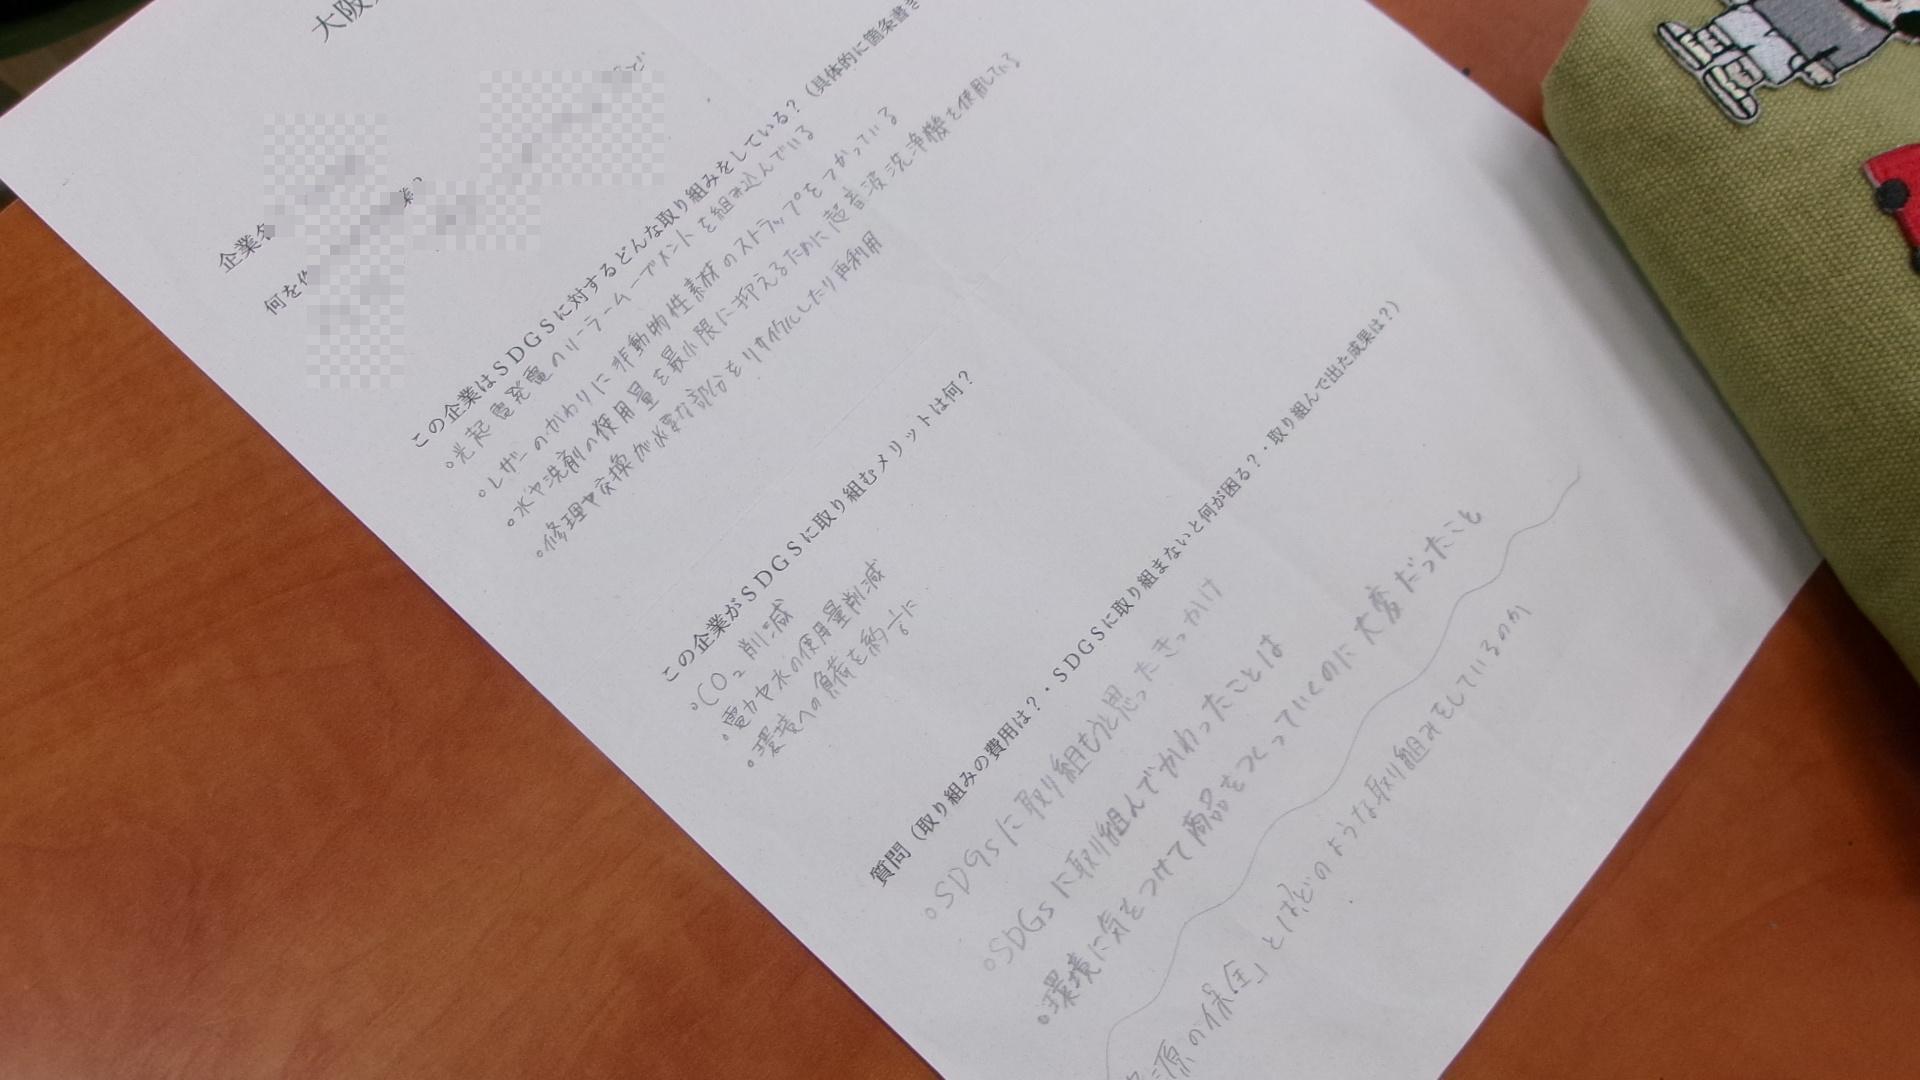 大阪
企業名
何を作
ど
この企業はＳＤＧＳに対するどんな取り組みをしている？（具体的に箇条書き
。光起電発電のソーラームーブメントを組み込んでいる
。レザーのかわりに非動物性素材のストラップをつかっている
。水や洗剤の使用量を最小限に抑えるために超音波洗浄機を使用している
。修理や交換が必要な部分をリサイクルしたり再利用
この企業がＳＤＧＳに取り組むメリットは何？
。CO₂削減
。電力や水の使用量削減
。環境への負荷を約1/6に
質問（取り組みの費用は？・ＳＤＧＳに取り組まないと何が困る？・取り組んで出た成果は？）
。SDGsに取り組もうと思ったきっかけ
。SDGsに取り組んでかわったことは
。環境に気をつけて商品をつくっていくのに大変だったこと
源の保全」とはどのような取り組みをしているのか